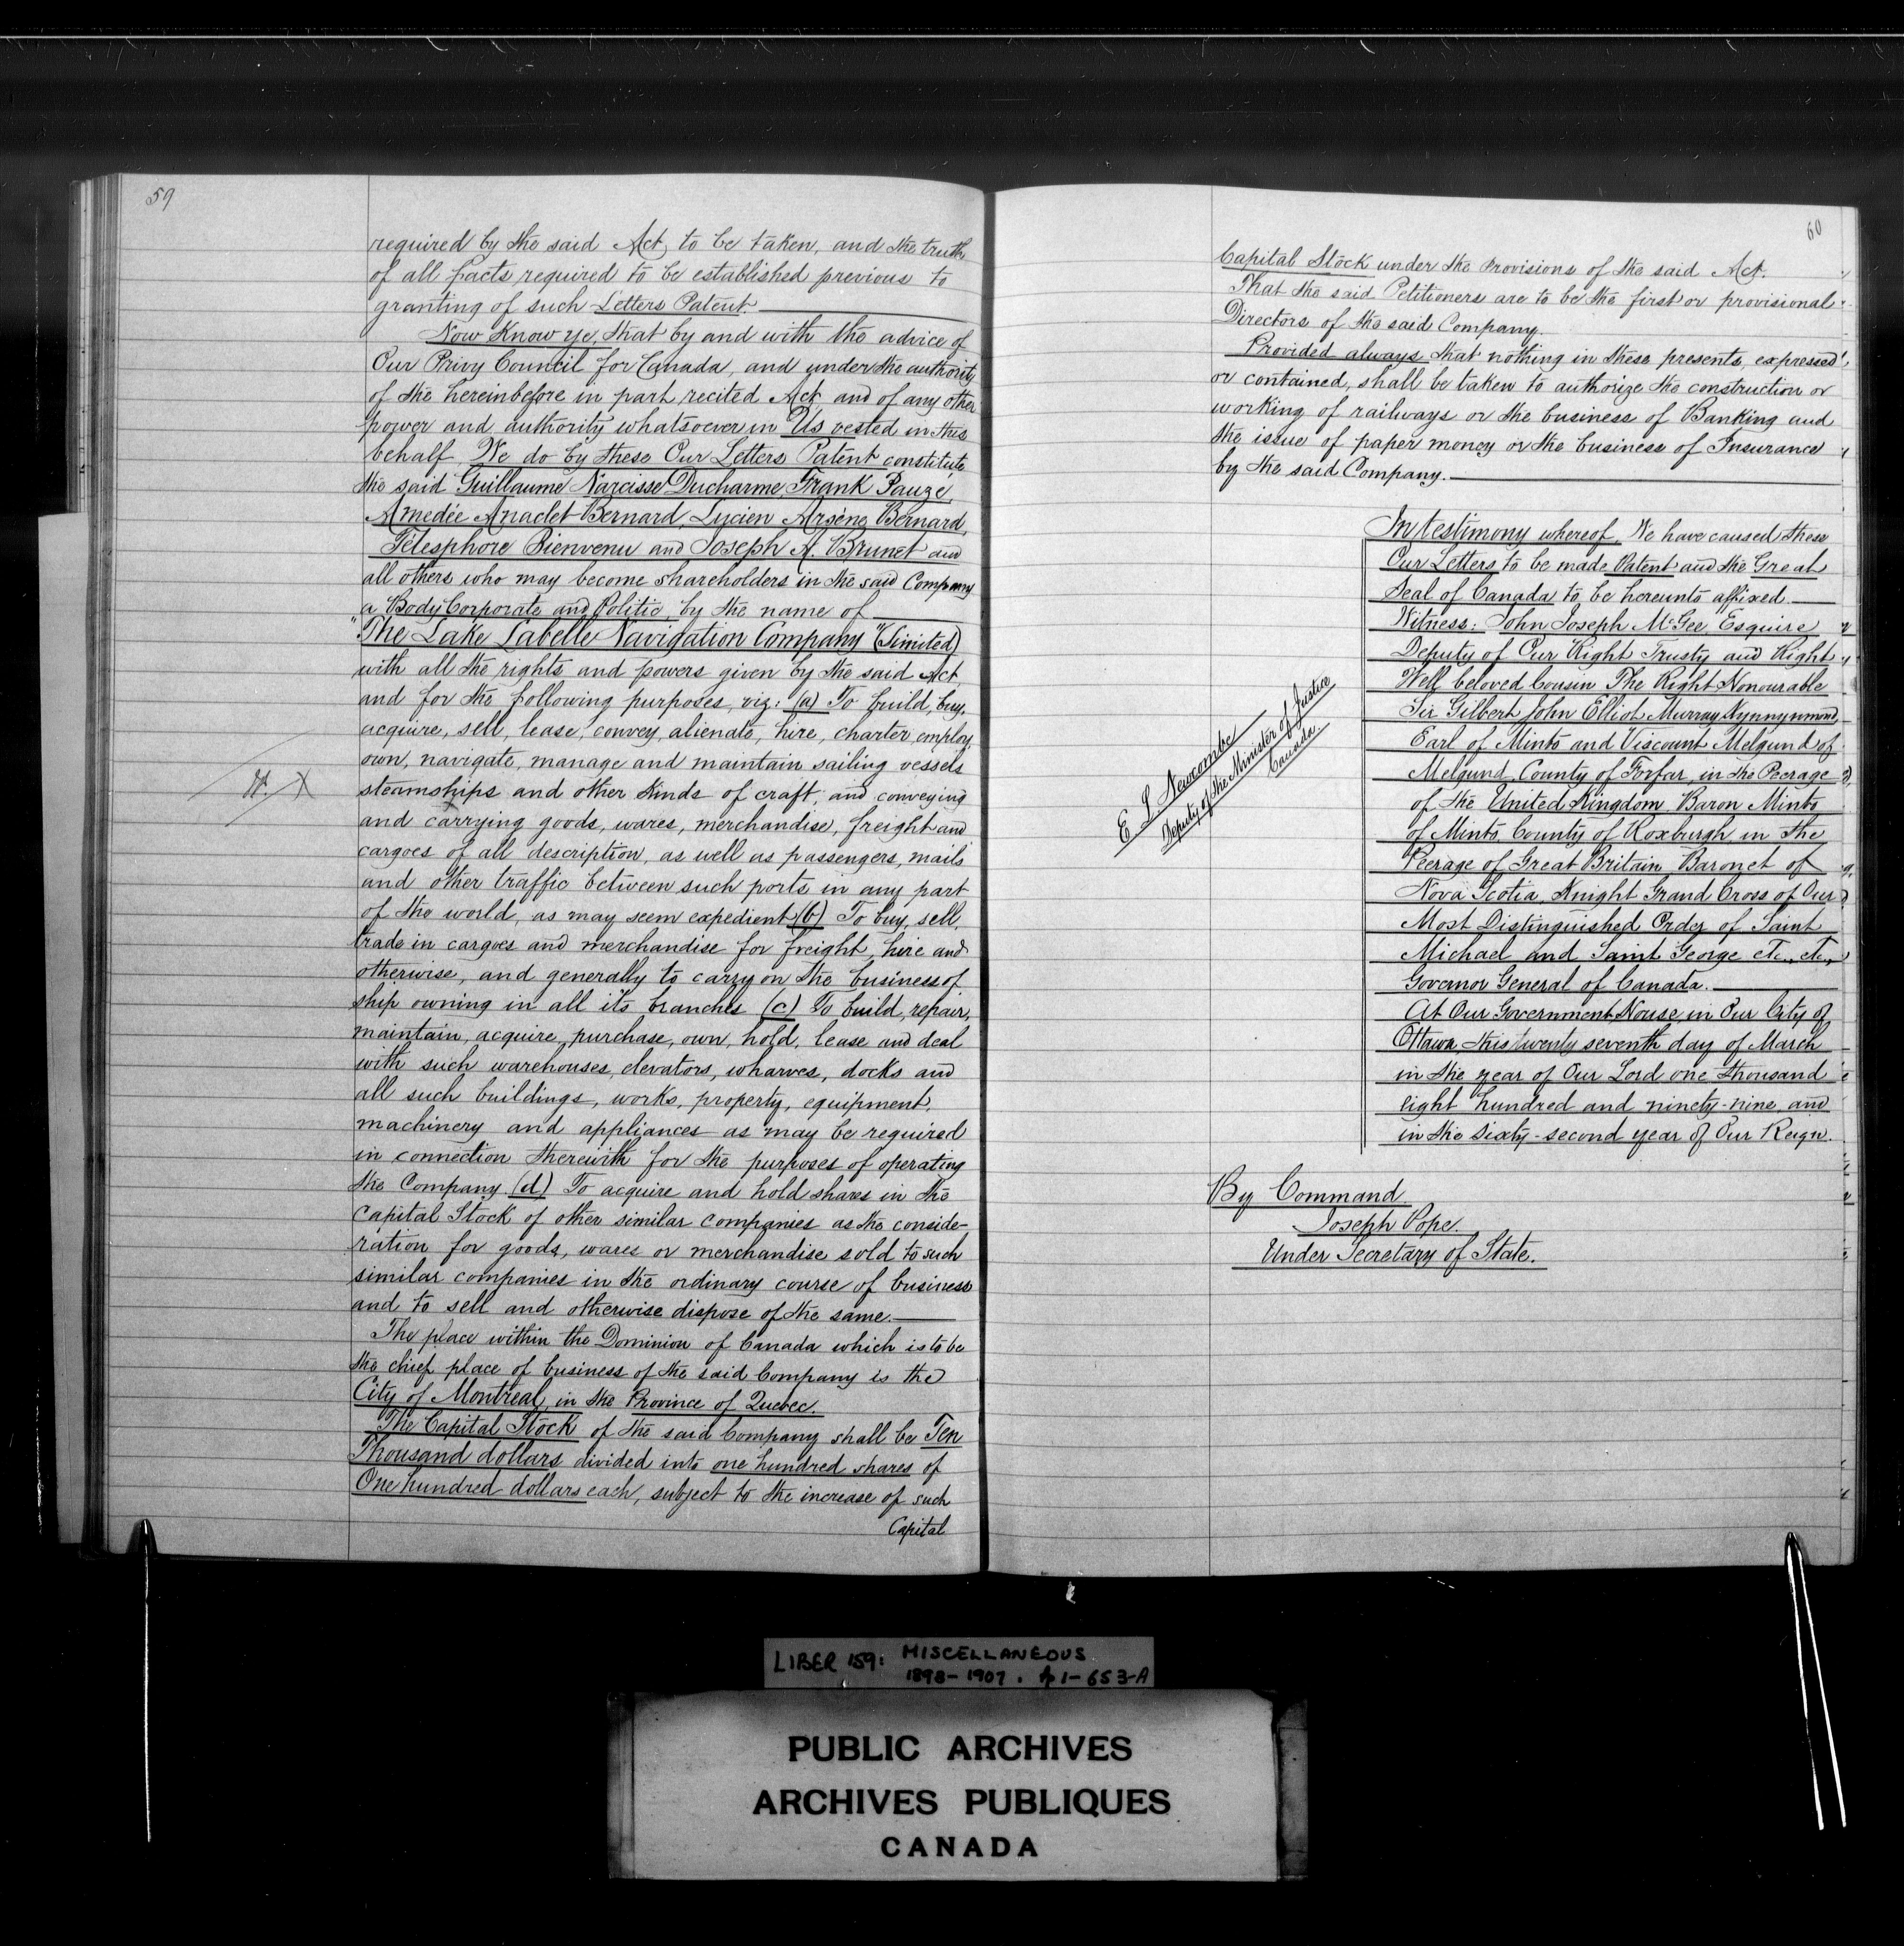 59
required by the said Act, to be taken, and the truth
of all facts required to be established previous to
granting of such Letters Patent.
Now Know Ye, that by and with the advice of
Our Privy Council for Canada, and under the authority
of the hereinbefore in part recited Act, and of any other
power and authority whatsoever in Us vested in this
behalf We do by these Our Letters Patent constitute
the said Guillaume Narcisse Ducharme, Frank Pauze,
Amedée Anaclet Bernard, Lucien Arsène Bernard,
Télesphore Bienvenu and Joseph A. Brunet and
all others who may become shareholders in the said Company
a Body Corporate and Politic, by the name of
"The Lake Labelle Navigation Company" (Limited)
with all the rights and powers given by the said Act,
and for the following purposes, viz: (a) To build, buy,
acquire, sell, lease, convey, alienate, hire, charter, employ,
own, navigate, manage and maintain sailing vessels
steamships and other kinds of craft, and conveying
and carrying goods, wares, merchandise, freight and
cargoes of all description, as well as passengers, mails
and other traffic between such ports in any part
of the world, as may seem expedient (b) To buy, sell,
trade in cargoes and merchandise for freight, hire and
otherwise, and generally to carry on the business of
ship owning in all its branches (c) To build, repair,
maintain, acquire, purchase, own, hold, lease and deal
with such warehouses, elevators, wharves, docks and
all such buildings, works, property, equipment,
machinery and appliances as may be required
in connection therewith for the purposes of operating
the Company (d) To acquire and hold shares in the
Capital Stock of other similar companies as the conside-
ration for goods, wares or merchandise sold to such
similar companies in the ordinary course of business
and to sell and otherwise dispose of the same.
The place within the Dominion of Canada which is to be
the chief place of business of the said Company is the
City of Montreal, in the Province of Quebec.
The Capital Stock of the said Company shall be Ten
Thousand dollars divided into one hundred shares of
One hundred dollars each, subject to the increase of such
Capital
60
Capital Stock under the Provisions of the said Act.
That the said Petitioners are to be the first or provisional
Directors of the said Company.
Provided always that nothing in these presents, expressed
or contained, shall be taken to authorize the construction or
working of railways or the business of Banking and
the issue of paper money or the business of Insurance
by the said Company.
E L Newcombe
Deputy of the Minister of Justice
Canada.
In testimony whereof, We have caused these
Our Letters to be made Patent and the Great
Seal of Canada to be hereunto affixed.
Witness: John Joseph McGee, Esquire
Deputy of Our Right Trusty and Right
Well beloved Cousin The Right Honourable
Sir Gilbert John Elliot Murray Kynnynmond,
Earl of Minto and Viscount Melgund of
Melgund, County of Forfar, in the Peerage
of the United Kingdom, Baron Minto
of Minto County of Roxburgh, in the
Peerage of Great Britain, Baronet of
Nova Scotia, Knight Grand Cross of Our
Most Distinguished Order of Saint
Michael and Saint George etc., etc.,
Governor General of Canada.
At Our Government House in Our City of
Ottawa, this twenty seventh day of March
in the year of Our Lord one thousand
eight hundred and ninety-nine and
in the sixty-second year of Our Reign.
By Command
Joseph Pope.
Under Secretary of State.
LIBER 159: MISCELLANEOUS
1898-1907. p 1-653-A
PUBLIC ARCHIVES
ARCHIVES PUBLIQUES
CANADA